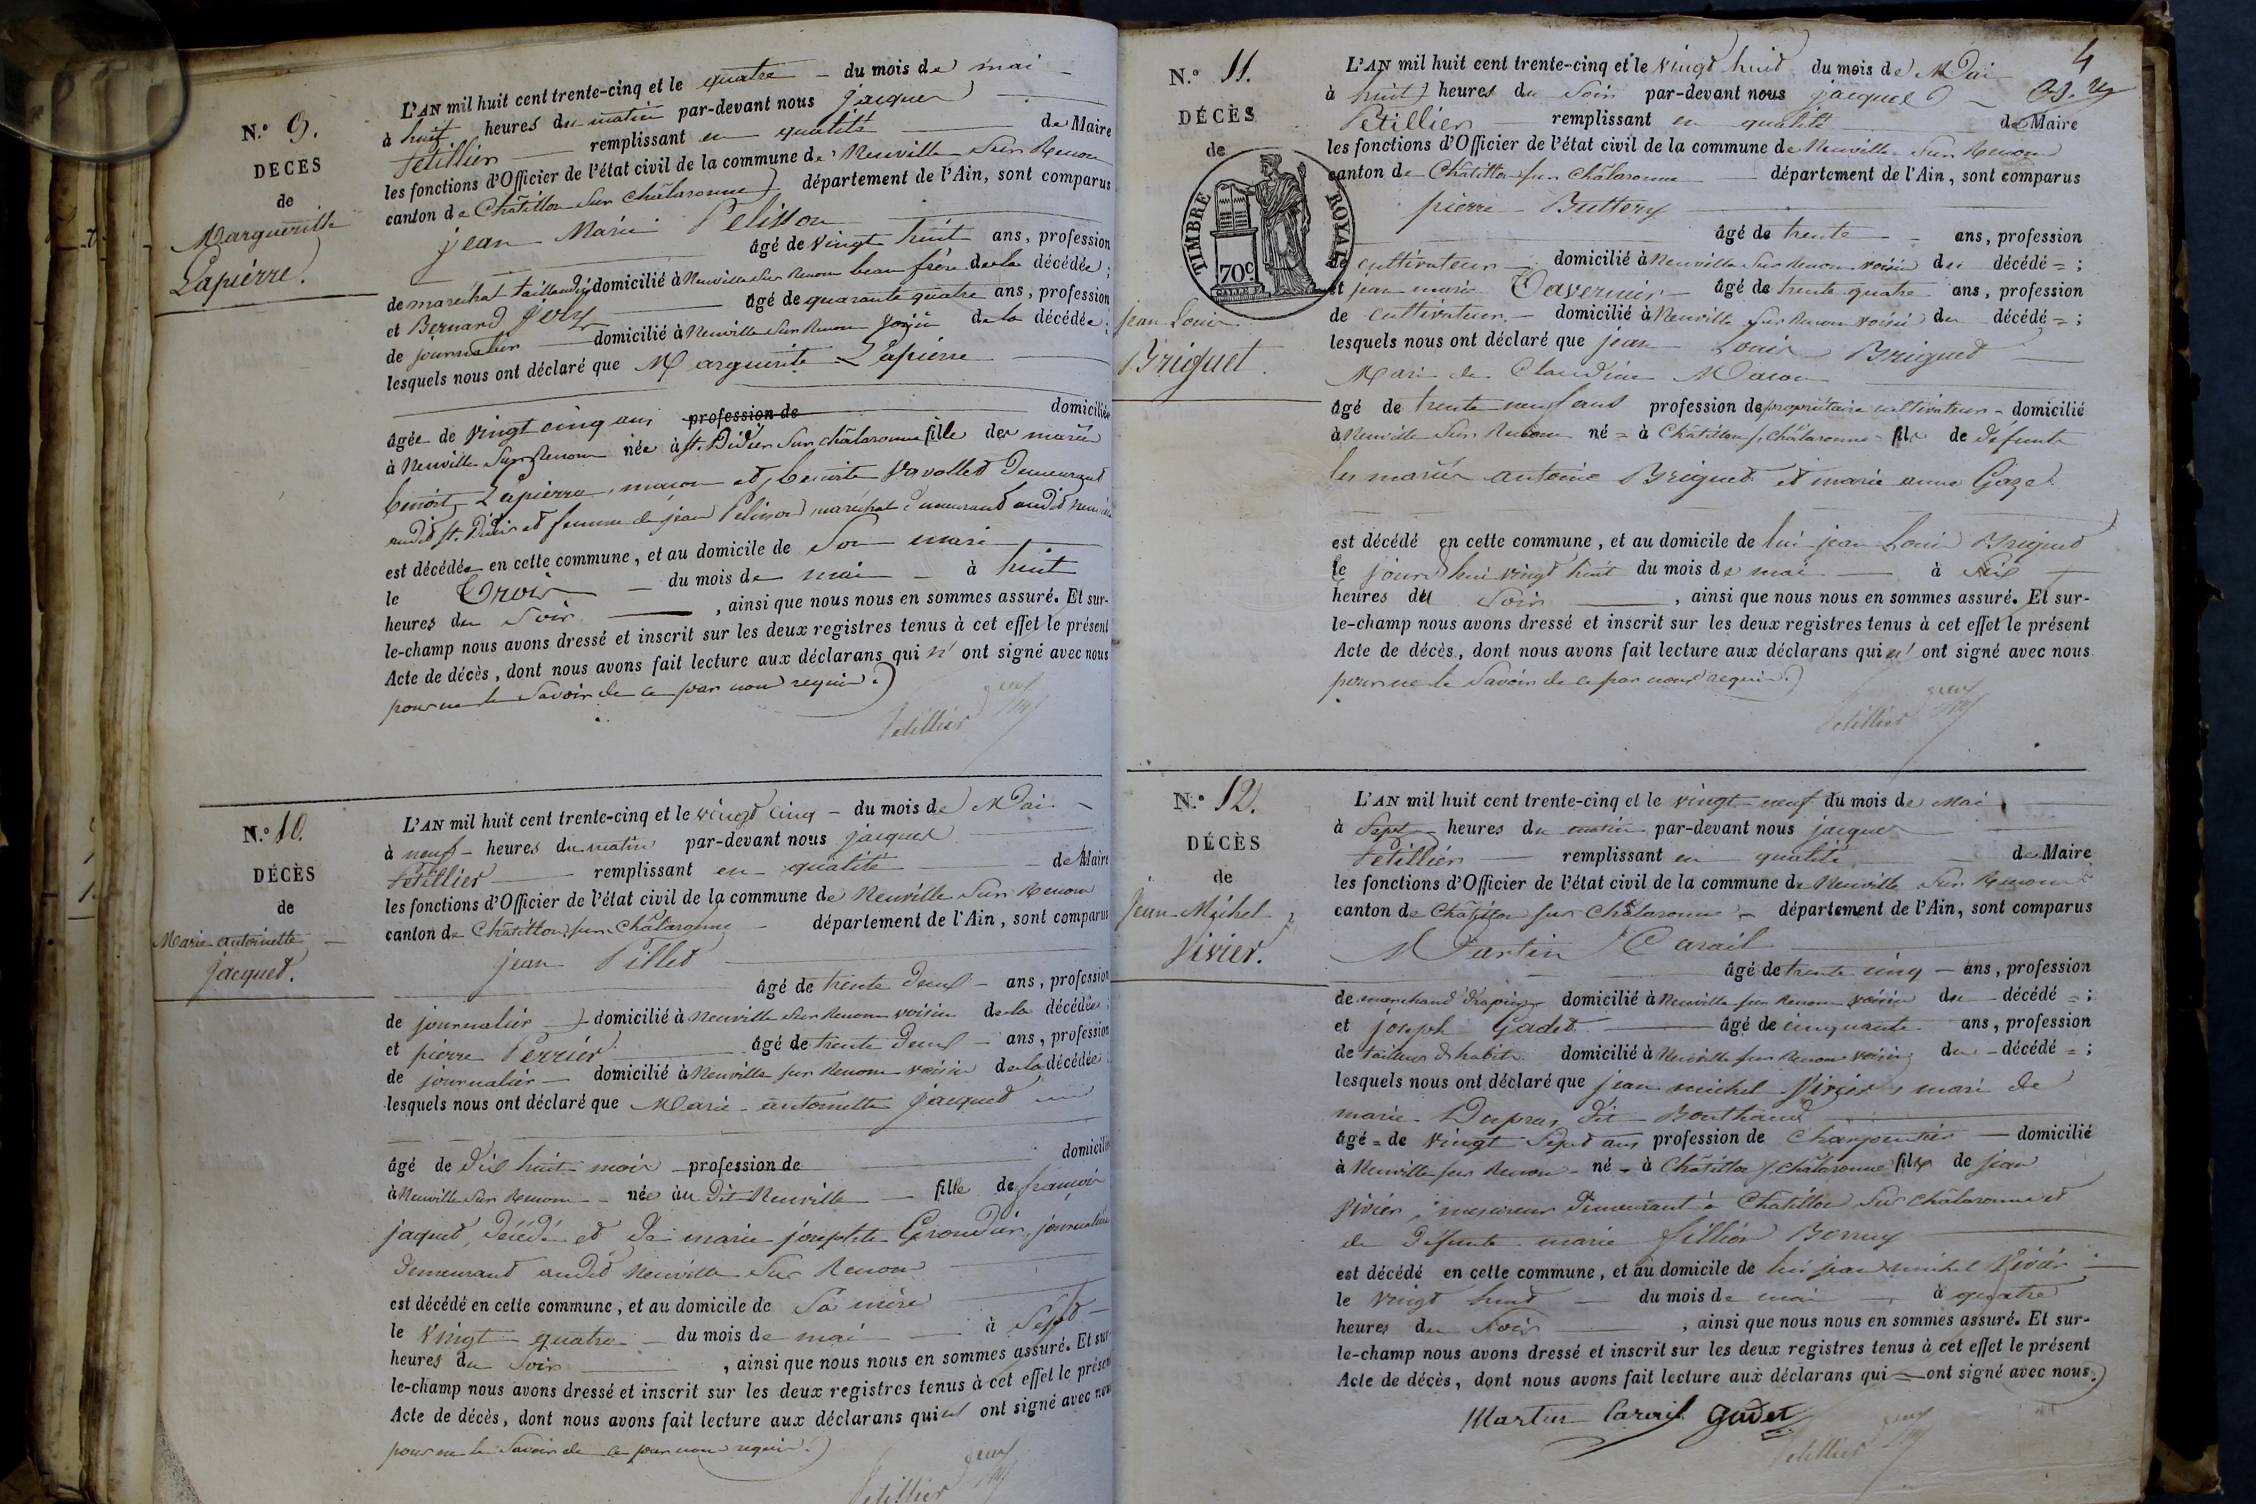 N.° 9.
DECES
de
Margueritte
Lapierre.
L'AN mil huit cent trente-cinq et le quatre du mois de mai
à huit heures du matin par-devant nous jacques
Petillier remplissant en qualité de Maire
les fonctions d'Officier de l'état civil de la commune de Neuville Sur Renom
canton de Châtillon Sur Châlaronne département de l'Ain, sont comparus
jean Marie Pelisson
âgé de vingt huit ans, profession
de maréchal taillandier domicilié à Neuville Sur Renom beau frère de la décédée ;
et Bernard âgé de quarante quatre ans, profession
de journalier domicilié à Neuville Sur Renom voisin de la décédée ;
lesquels nous ont déclaré que Marguerite Lapierre
âgée de vingt cinq ans profession de domiciliée
à Neuville Sur Renom née à St. Didier Sur châlaronne fille des mariés
benoit Lapierre, macon et benoite Vavollet demeurant
audit St. Didier et femme de jean Pelisson maréchal demeurant audit
est décédée en cette commune, et au domicile de Son mari
le Trois du mois de mai à huit
heures du Soir , ainsi que nous nous en sommes assuré. Et sur-
le-champ nous avons dressé et inscrit sur les deux registres tenus à cet effet le présent
Acte de décès, dont nous avons fait lecture aux déclarans qui n' ont signé avec nous
pour ne le Savoir de ce par nous requis.
Petillier
N.° 10.
DÉCÈS
de
Marie antoinette
jacquet.
L'AN mil huit cent trente-cinq et le vingt cinq du mois de Mai
à neuf heures du matin par-devant nous jacques
Petillier remplissant en qualité de Maire
les fonctions d'Officier de l'état civil de la commune de Neuville Sur Renom
canton de Châtillon sur Châlaronne département de l'Ain, sont comparus
jean Pillet
âgé de trente deux ans, profession
de journalier domicilié à Neuville Sur Renom voisin de la décédée ;
et pierre Perrier âgé de trente deux ans, profession
de journalier domicilié à Neuville sur Renom voisin de la décédée
lesquels nous ont déclaré que Marie antoinette jacquet
âgé de dix huit mois profession de domicilié
à Neuville Sur Renom née au dit Neuville fille de françois
jaquet, décédé et de marie josephte Grondier, journalière
demeurant audit Neuville Sur Renom
est décédé en cette commune, et au domicile de Sa mère
le vingt quatre du mois de mai à Sept
heures du Soir , ainsi que nous nous en sommes assuré. Et sur-
le-champ nous avons dressé et inscrit sur les deux registres tenus à cet effet le présent
Acte de décès, dont nous avons fait lecture aux déclarans qui n' ont signé avec nous
pour ne le Savoir de ce par nous requis.
Petillier
4
N.° 11.
DÉCÈS
de
TIMBRE ROYAL
70c
jean Louis
Briquet.
L'AN mil huit cent trente-cinq et le vingt huit du mois de Mai
à huit heures du Soir par-devant nous jacques
Petillier remplissant en qualité de Maire
les fonctions d'Officier de l'état civil de la commune de Neuville Sur Renom
canton de Châtillon sur Châlaronne département de l'Ain, sont comparus
pierre Buttery
âgé de trente ans, profession
de cultivateur domicilié à Neuville Sur Renom voisin du décédé = ;
et jean marie Tavernier âgé de trente quatre ans, profession
de cultivateur domicilié à Neuville Sur Renom voisin du décédé = ;
lesquels nous ont déclaré que jean Louis Briquet
Mari de Claudine Macon
âgé de trente neuf ans profession de propriétaire cultivateur domicilié
à Neuville Sur Renom né = à Châtillon s. Châlaronne fils de défunts
les mariés antoine Briquet et marie anne Goze
est décédé en cette commune, et au domicile de lui jean Louis Briquet
le jourd'hui vingt huit du mois de mai à Six
heures du Soir , ainsi que nous nous en sommes assuré. Et sur-
le-champ nous avons dressé et inscrit sur les deux registres tenus à cet effet le présent
Acte de décès, dont nous avons fait lecture aux déclarans qui n' ont signé avec nous
pour ne le Savoir de ce par nous requis.
Petillier
N.° 12.
DÉCÈS
de
Jean Michel
Vivier.
L'AN mil huit cent trente-cinq et le vingt neuf du mois de Mai
à Sept heures du matin par-devant nous jacques
Petillier remplissant en qualité de Maire
les fonctions d'Officier de l'état civil de la commune de Neuville Sur Renom
canton de Châtillon sur Châlaronne département de l'Ain, sont comparus
Martin Carail
âgé de trente cinq ans, profession
de marchand drapier domicilié à Neuville sur Renom voisin du décédé = ;
et joseph Gadet âgé de cinquante ans, profession
de tailleur d'habits domicilié à Neuville sur Renom voisin du décédé = ;
lesquels nous ont déclaré que jean michel Vivier, mari de
marie Dupras dit Bouthaud
âgé = de vingt Sept ans profession de Charpentier domicilié
à Neuville sur Renom né à Châtillon s. Châlaronne fils de jean
Vivier, demeurant à Châtillon Sur châlaronne et
de défunte marie fillion Bernuy
est décédé en cette commune, et au domicile de lui jean michel Vivier
le vingt huit du mois de mai à quatre
heures du Soir , ainsi que nous nous en sommes assuré. Et sur-
le-champ nous avons dressé et inscrit sur les deux registres tenus à cet effet le présent
Acte de décès, dont nous avons fait lecture aux déclarans qui ont signé avec nous.
Martin Carail Gadet
Petillier